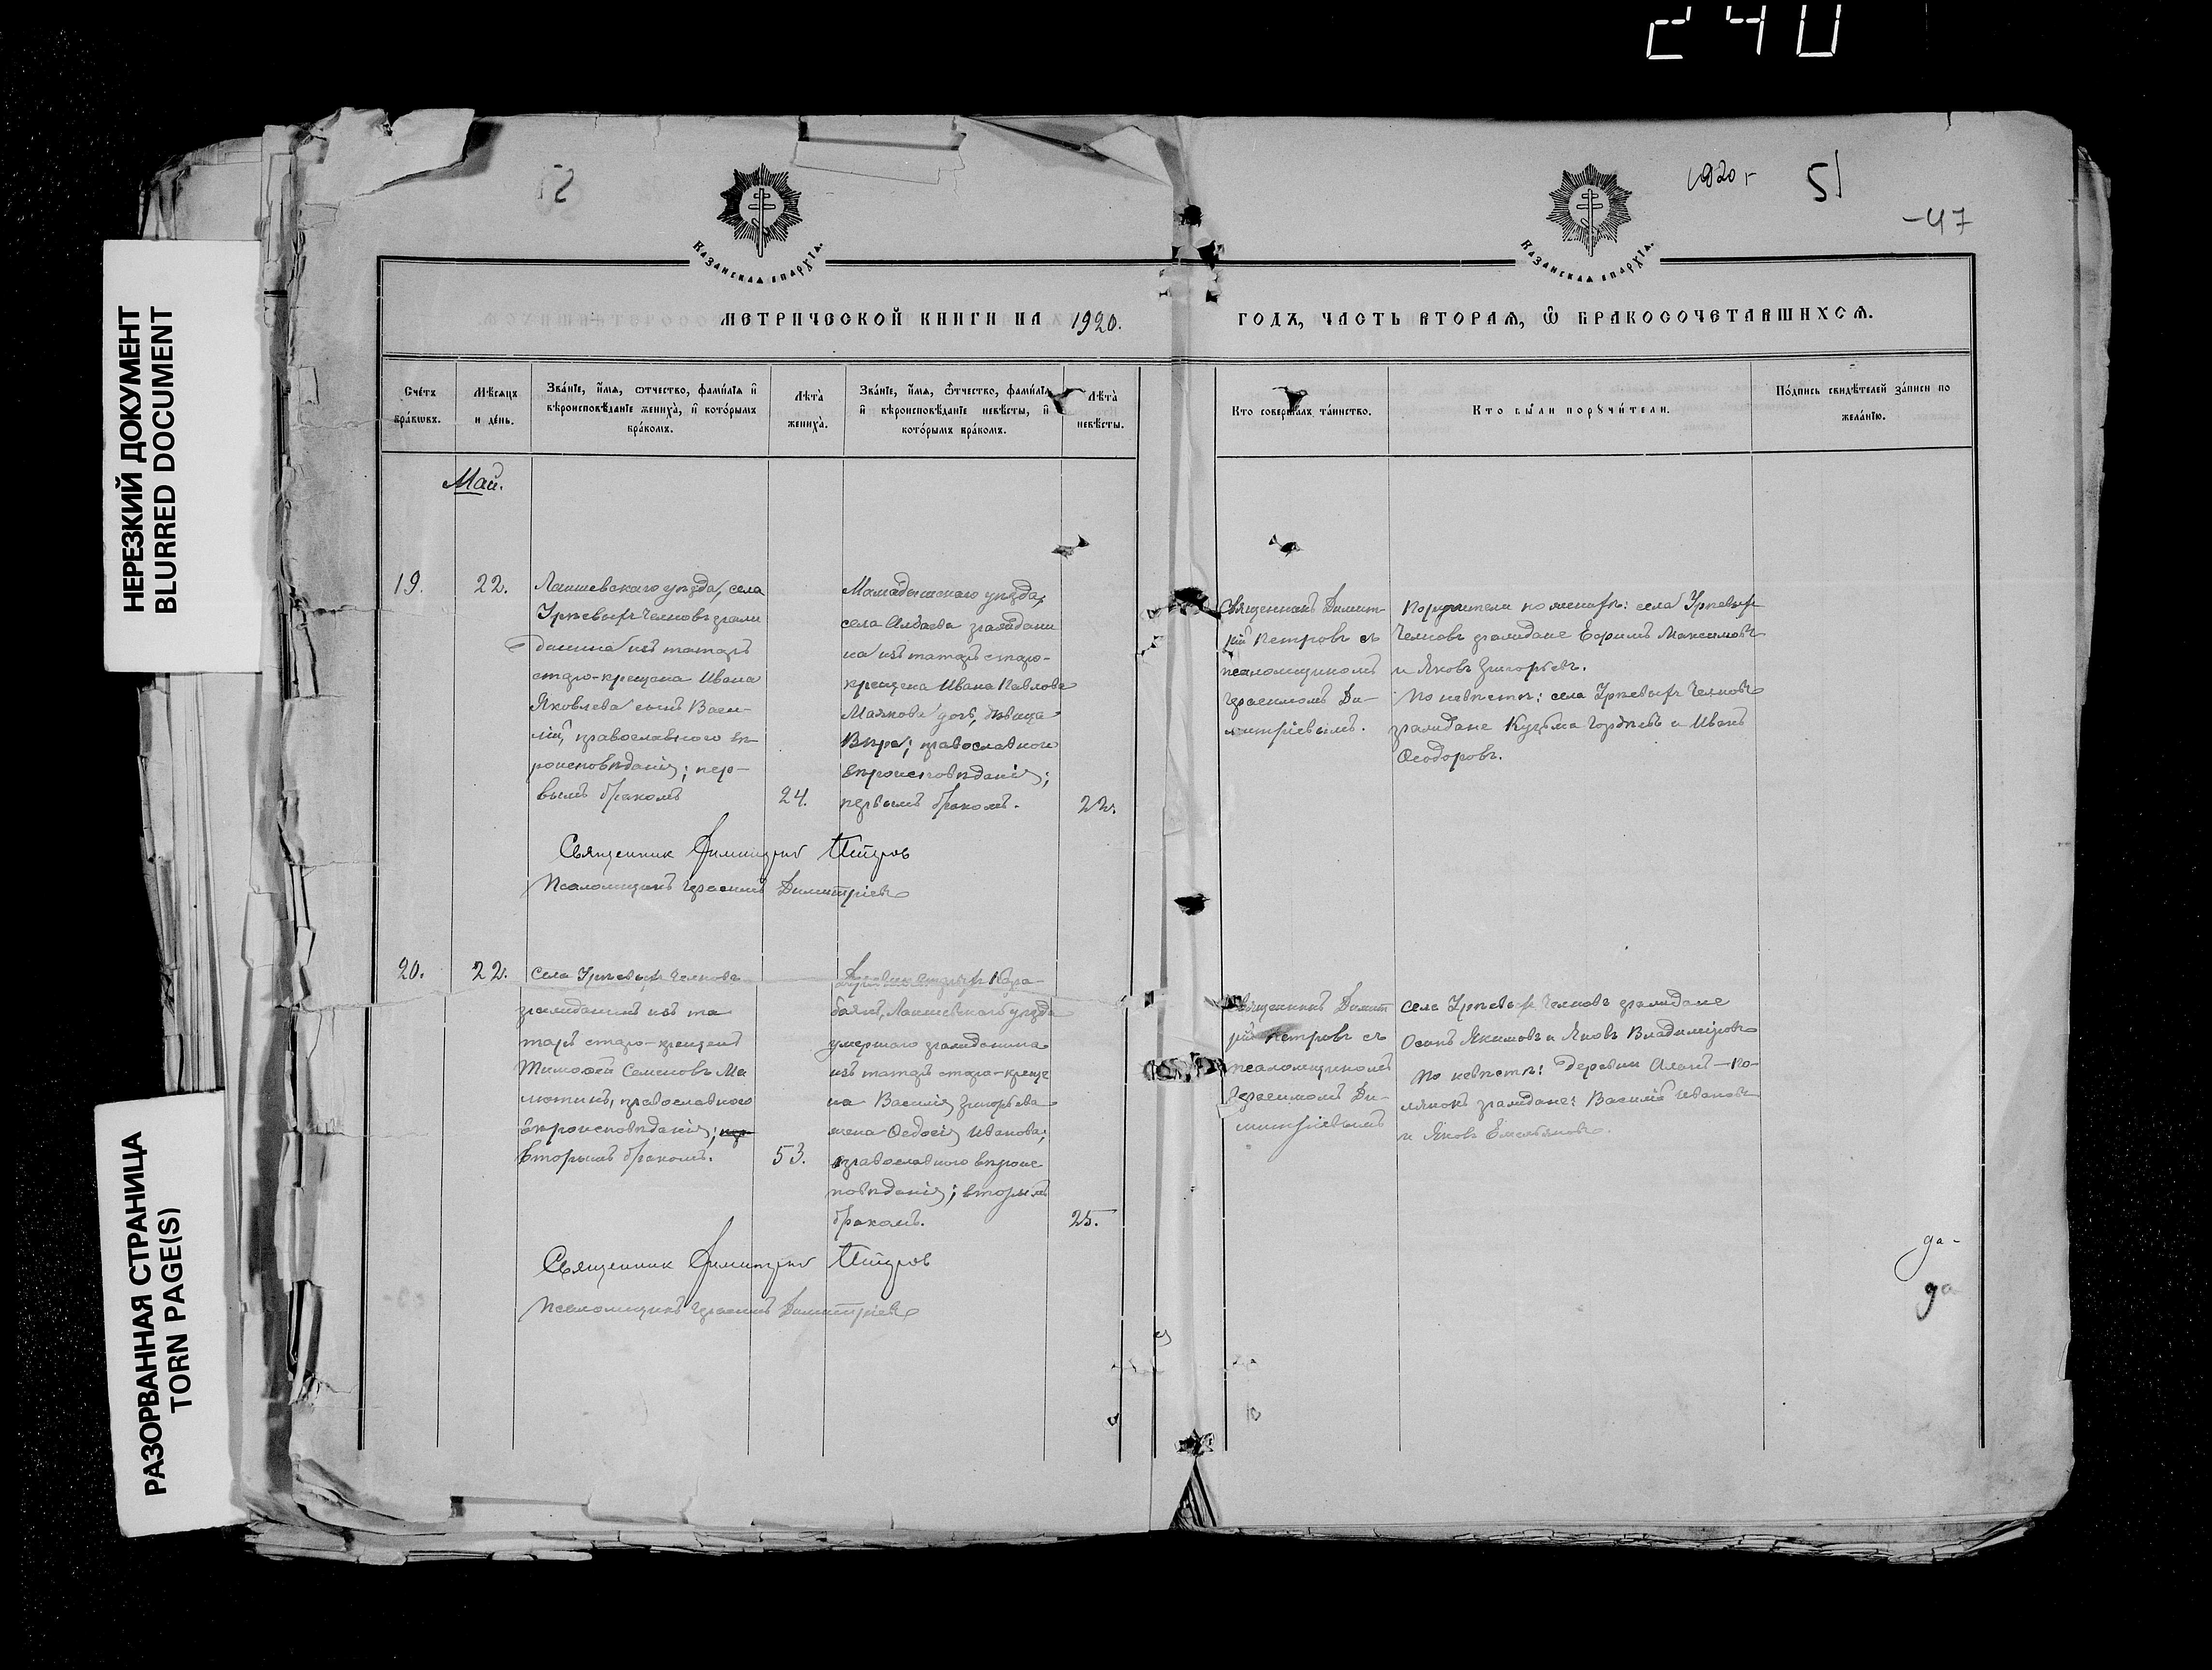 240
НЕРЕЗКИЙ ДОКУМЕНТ
BLURRED DOCUMENT
РАЗОРВАННАЯ СТРАНИЦА
TORN PAGE(S)
1920 г
51
-47
КАЗАНСКАЯ ЕПАРХІА.
КАЗАНСКАЯ ЕПАРХІА.
МЕТРИЧЕСКОЙ КНИГИ НА 1920.
ГОДЪ, ЧАСТЬ ВТОРАЯ, Ѿ БРАКОСОЧЕТАВШИХСЯ.
Сче́тъ бра́ковъ.
Мѣ́сяцъ и де́нь.
Зва́нїе, и́мѧ, ѻ́тчество, фами́лїѧ и҆ вѣроисповѣ́данїе жениха̀, и҆ кото́рымъ бра́комъ.
Лѣта̀ жениха̀.
Зва́нїе, и́мѧ, ѻ́тчество, фами́лїѧ и҆ вѣроисповѣ́данїе невѣ́сты, и҆ кото́рымъ бра́комъ.
Лѣта̀ невѣ́сты.
Кто совершалъ та́инство.
Кто бы́ли порꙋчи́тели.
По́дпись свидѣ́телей за́писи по жела́нїю.
Май.
19.
22.
Лаишевскаго уѣзда, села
Урѣевыхъ Челновъ граж
данина изъ татаръ
старо-крещена Ивана
Яковлева сынъ Васи-
лій, православнаго вѣ-
роисповѣданія; пер-
вымъ бракомъ
24.
Мамадышскаго уѣзда,
села Албаева гражданин
на изъ татаръ старо-
крещена Ивана Павлова
дочь, дѣвица
Вѣра; православнаго
вѣроисповѣданія;
первымъ бракомъ.
22.
Священникъ Димит-
рій Петровъ съ
псаломщикомъ
Герасимомъ Ди-
митріевымъ.
Поручители по женихѣ: села Урѣевыхъ
Челновъ граждане Ефримъ Максимовъ
и Яковъ Григорьевъ.
По невѣстѣ: села Урѣевыхъ Челновъ
граждане Кузьма Гордѣевъ и Иванъ
Ѳеодоровъ.
Священник Димитрий Петров
Псаломщикъ Герасимъ Димитріевъ
20.
22.
Села Урѣевыхъ Челновъ
гражданинъ изъ та
таръ старо-крещенъ
Тимоѳей Семеновъ Ма
лютинъ, православнаго
вѣроисповѣданія;
вторымъ бракомъ.
53.
Деревни Старыхъ Кара-
баянъ, Лаишевскаго уѣзда
умершаго гражданина
изъ татаръ старо-креще
на Василія Григорьева
жена Ѳедосія Иванова;
православнаго вѣроис
повѣданія; вторымъ
бракомъ.
25.
Священникъ Димит
рій Петровъ съ
псаломщикомъ
Герасимомъ Ди-
митріевымъ
Села Урѣевыхъ Челновъ граждане
Осипъ Якимовъ и Яковъ Владиміровъ
По невѣстѣ: деревни Аланъ-По-
лянокъ граждане: Василій Ивановъ
и Яковъ Емельяновъ.
Священник Димитрий Петров
Псаломщикъ Герасимъ Димитріевъ
да-
да